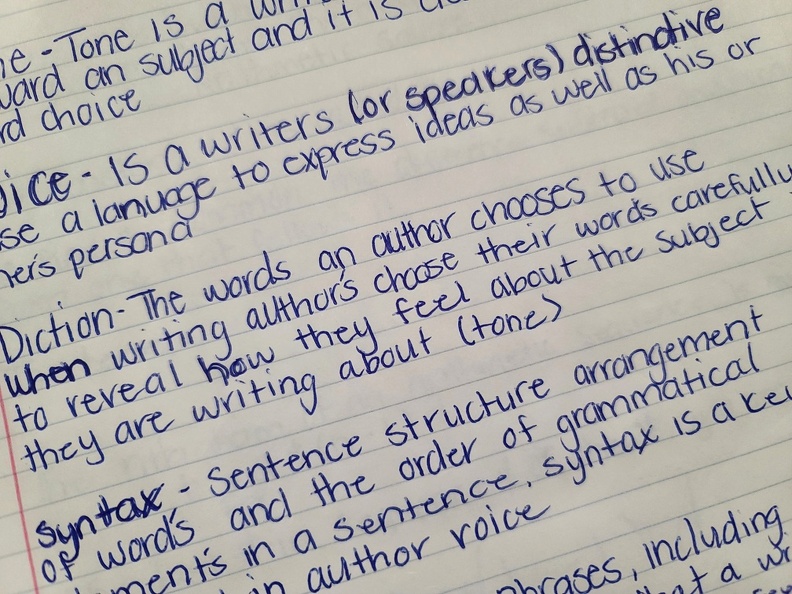 ne - Tone is a wri
ward an subject and it is
rd choice
oice - Is a writers (or speakers) distinctive
se a lanuage to express ideas as well as his or
hers persona
Diction - The words an author chooses to use
when writing author's choose their words carefully
to reveal how they feel about the subject
they are writing about (tone)
syntax - sentence structure arrangement
of word's and the order of grammatical
ements in a sentence, syntax is a key
in author voice
phrases, including